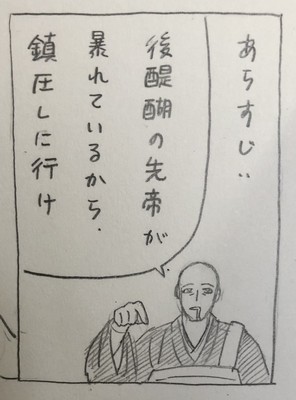 あらすじ:
後醍醐の先帝が
暴れているから、
鎮圧しに行け